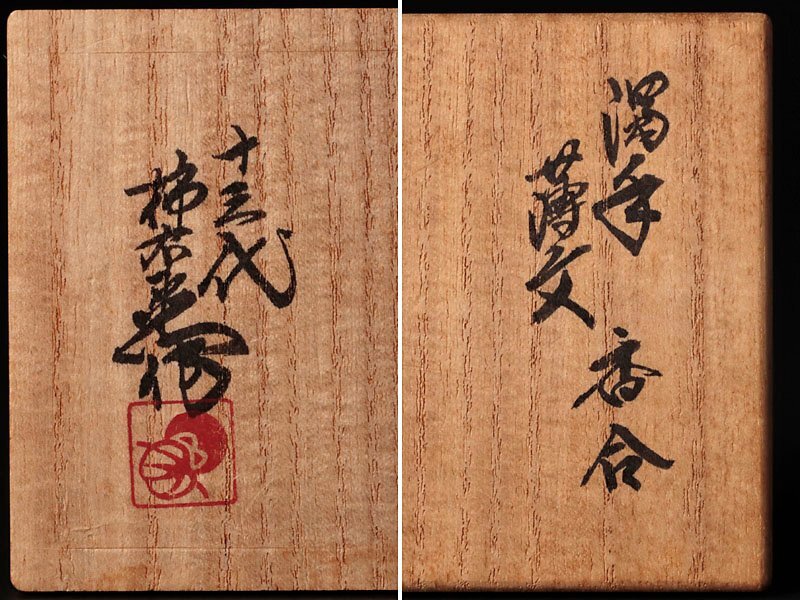 十三代
柿右衛門作
濁手
薄文
香合